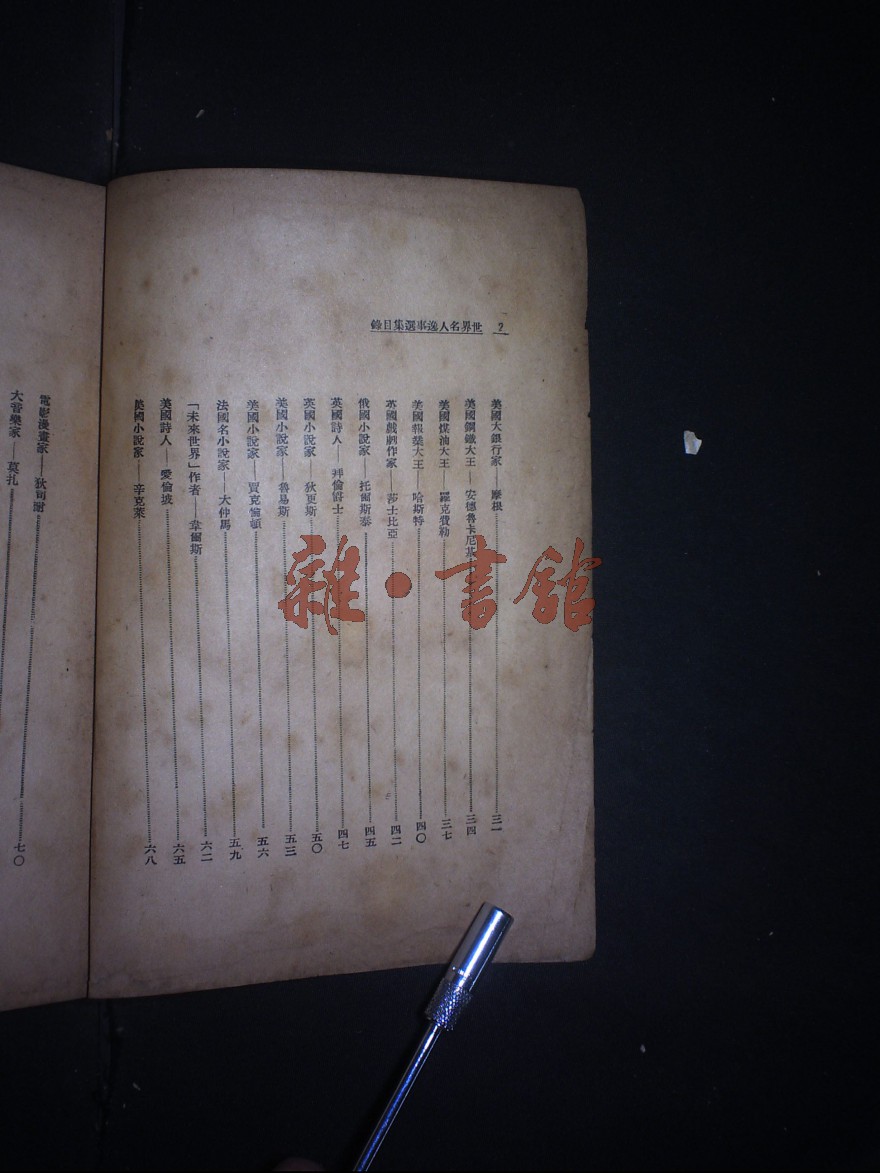 世界名人逸事選集目錄 2
美國大銀行家——摩根 三一
美國鋼鐵大王——安德魯卡尼基 三四
美國煤油大王——羅克費勒 三七
美國報業大王——哈斯特 四〇
英國戲劇作家——莎士比亞 四二
俄國小說家——托爾斯泰 四五
英國詩人——拜倫爵士 四七
英國小說家——狄更斯 五〇
美國小說家——魯易斯 五三
美國小說家——賈克倫頓 五六
法國名小說家——大仲馬 五九
「未來世界」作者——韋爾斯 六二
美國詩人——愛倫坡 六五
美國小說家——辛克萊 六八
電影漫畫家——狄司耐 七〇
大音樂家——莫扎
雜·書館